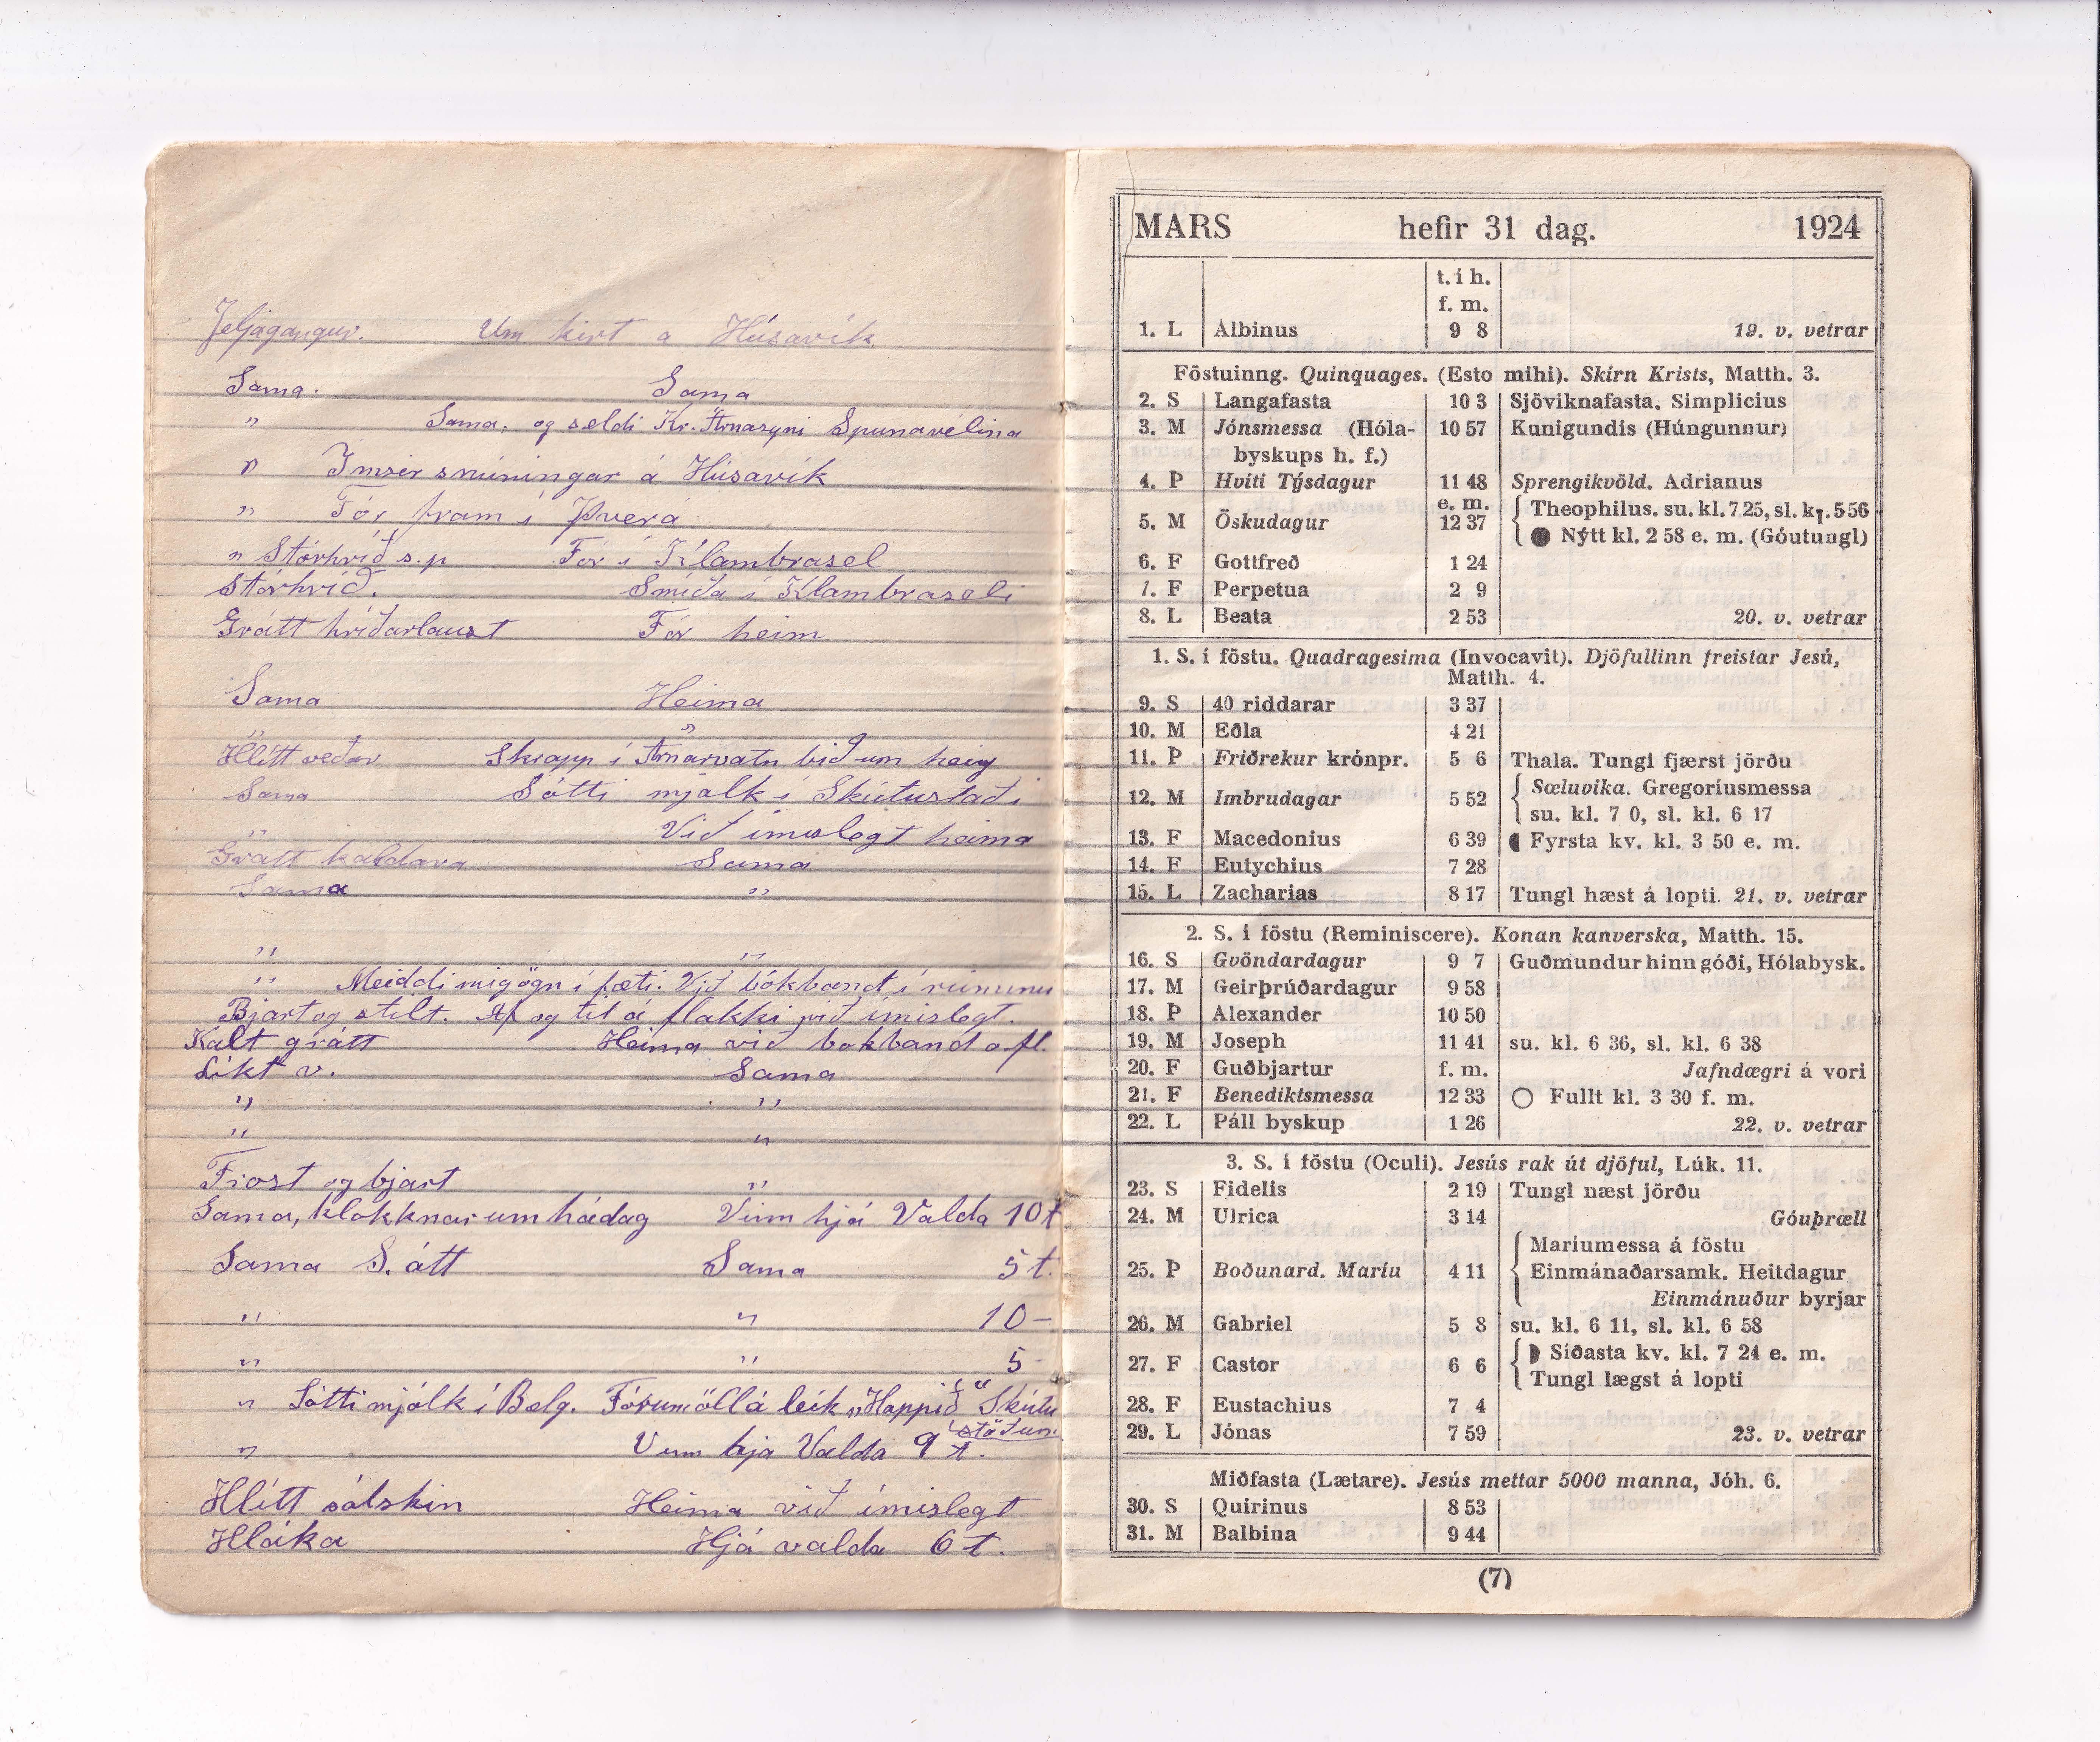 Jeljagangur. Um kirt a Húsavík
Sama. Sama
" Sama. og seldi Kr. Árnasyni Spunavélina
" Ímsir snúningar á Húsavík
" Fór fram í Þverá
" Stórhríð s.p Fór í Klambrasel
Stórhríð. Smíða í Klambraseli
Grátt hríðarlaust Fór heim
Sama Heima
" "
Hlítt veður Skrapp í Arnarvatn bið um heig
Sama Sótti mjólk í Skútustaði
" Við ímislegt heima
Grátt kaldara Sama
Sama "
" "
" Meiddi mig ögn í fæti. Við bókband í rúminu
Bjart og stilt. Af og til á flakki við ímislegt.
Kalt grátt Heima við bokband o.fl.
Líkt v. Sama
" "
" "
Frost og bjart "
Sama, klokknar um hádag Vinn hjá Valda 10 t
Sama S. átt Sama 5 t.
" " 10 -
" " 5 -
" Sótti mjólk í Belg. Fórum öll á leik „Happið" í Skútu
stöðum
" Vinn hja Valda 9 t.
Hlítt sólskin Heima við ímislegt
Hláka Hjá valda 6 t.
MARS hefir 31 dag. 1924
t. í h.
f. m.
1. L Albinus 9 8 19. v. vetrar
Föstuinng. Quinquages. (Esto mihi). Skírn Krists, Matth. 3.
2. S Langafasta 10 3 Sjöviknafasta. Simplicius
3. M Jónsmessa (Hóla- 10 57 Kunigundis (Húngunnur)
byskups h. f.)
4. Þ Hvíti Týsdagur 11 48 Sprengikvöld. Adrianus
e. m.
5. M Öskudagur 12 37 Theophilus. su. kl. 7 25, sl. kl. 5 56
● Nýtt kl. 2 58 e. m. (Góutungl)
6. F Gottfreð 1 24
7. F Perpetua 2 9
8. L Beata 2 53 20. v. vetrar
1. S. í föstu. Quadragesima (Invocavit). Djöfullinn freistar Jesú,
Matth. 4.
9. S 40 riddarar 3 37
10. M Eðla 4 21
11. Þ Friðrekur krónpr. 5 6 Thala. Tungl fjærst jörðu
12. M Imbrudagar 5 52 Sæluvika. Gregoríusmessa
su. kl. 7 0, sl. kl. 6 17
13. F Macedonius 6 39 Fyrsta kv. kl. 3 50 e. m.
14. F Eutychius 7 28
15. L Zacharias 8 17 Tungl hæst á lopti. 21. v. vetrar
2. S. í föstu (Reminiscere). Konan kanverska, Matth. 15.
16. S Gvöndardagur 9 7 Guðmundur hinn góði, Hólabysk.
17. M Geirþrúðardagur 9 58
18. Þ Alexander 10 50
19. M Joseph 11 41 su. kl. 6 36, sl. kl. 6 38
20. F Guðbjartur f. m. Jafndægri á vori
21. F Benediktsmessa 12 33 ○ Fullt kl. 3 30 f. m.
22. L Páll byskup 1 26 22. v. vetrar
3. S. í föstu (Oculi). Jesús rak út djöful, Lúk. 11.
23. S Fidelis 2 19 Tungl næst jörðu
24. M Ulrica 3 14 Góuþræll
25. Þ Boðunard. Maríu 4 11 Maríumessa á föstu
Einmánaðarsamk. Heitdagur
Einmánuður byrjar
26. M Gabriel 5 8 su. kl. 6 11, sl. kl. 6 58
27. F Castor 6 6 Síðasta kv. kl. 7 24 e. m.
Tungl lægst á lopti
28. F Eustachius 7 4
29. L Jónas 7 59 23. v. vetrar
Miðfasta (Lætare). Jesús mettar 5000 manna, Jóh. 6.
30. S Quirinus 8 53
31. M Balbina 9 44
(7)